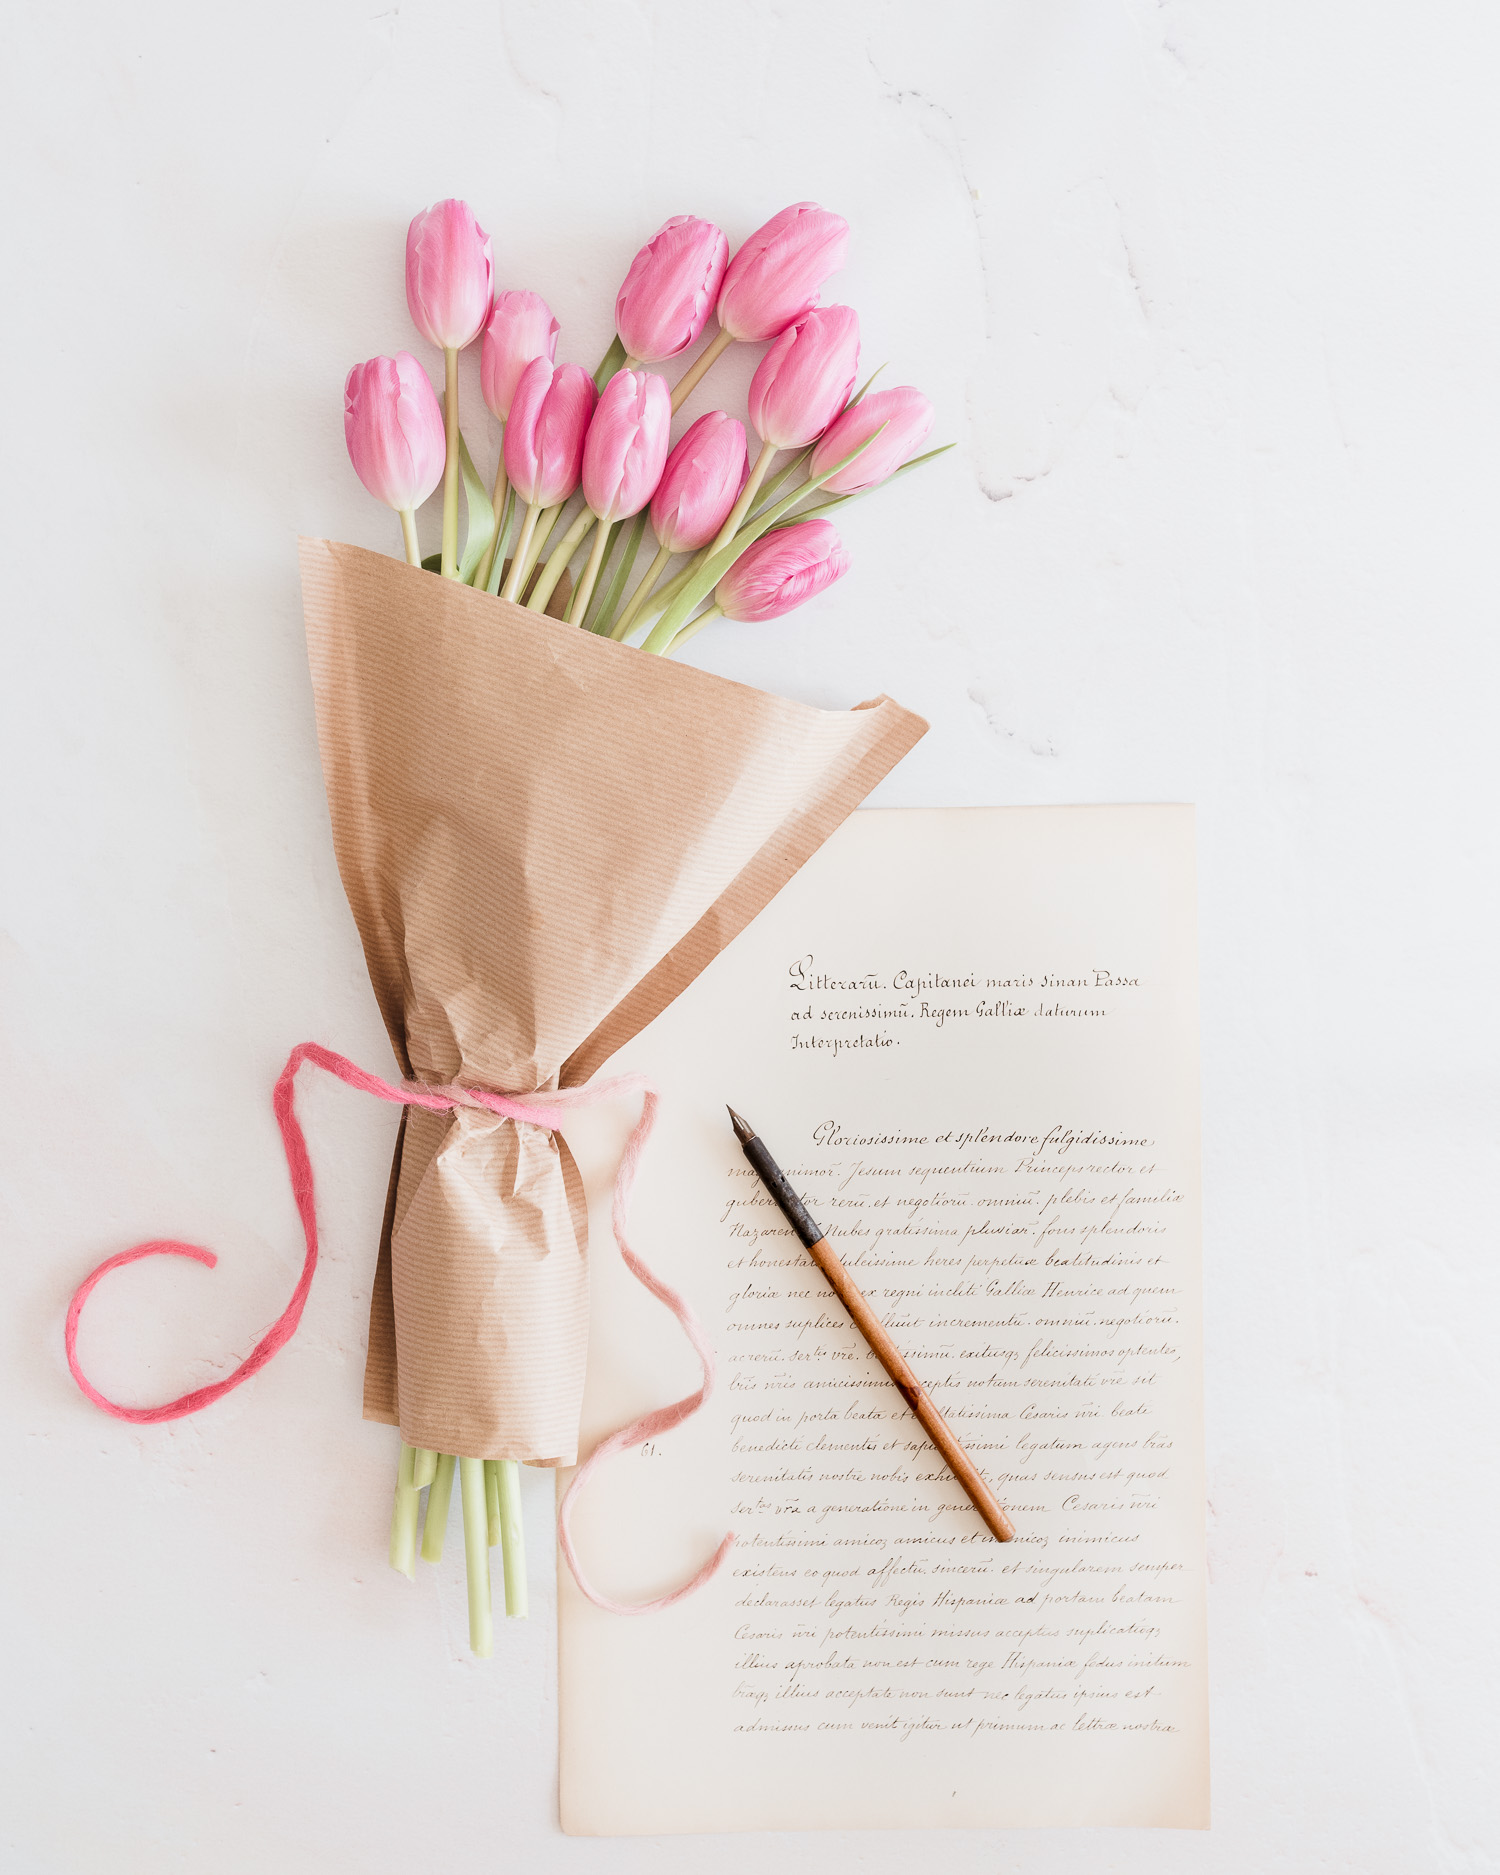 Litterarū. Capitanei maris Sinan Passa
ad serenissimū. Regem Galliæ datarum
Interpretatio.
Gloriosissime et splendore fulgidissime
nimor. Jesum sequentium Princeps rector et
rerū. et negotiorū. omniū. plebis et familiæ
Nubes gratissima pluviar. fons splendoris
et dulcissime heres perpetuæ beatitudinis et
gloriæ nec regni incliti Galliæ Henrice ad quem
omnes suplices incrementū. omniū. negotiorū.
ac rerū. Serᵗⁱˢ vrē. exitusq felicissimos optentes,
amicissimis notum serenitati vrē sit
quod in porta beata et Cesaris nri beati
benedicti clementis et legatum agens
serenitatis nostre nobis quas sensus est quod
Serᵗᵃˢ vra a generatione in Cesaris nri
potentissimi amicoz amicus et inimicus
existens eo quod affectū. sincerū. et singularem semper
declarasset legatus Regis Hispaniæ ad portam beatam
Cesaris nri potentissimi missus acceptus
illius aprobata non est cum rege Hispaniæ fedus initum
illius acceptate non sunt nec legatus ipsius est
61.
admissus cum venit igitur ut primum ac lettræ nostræ